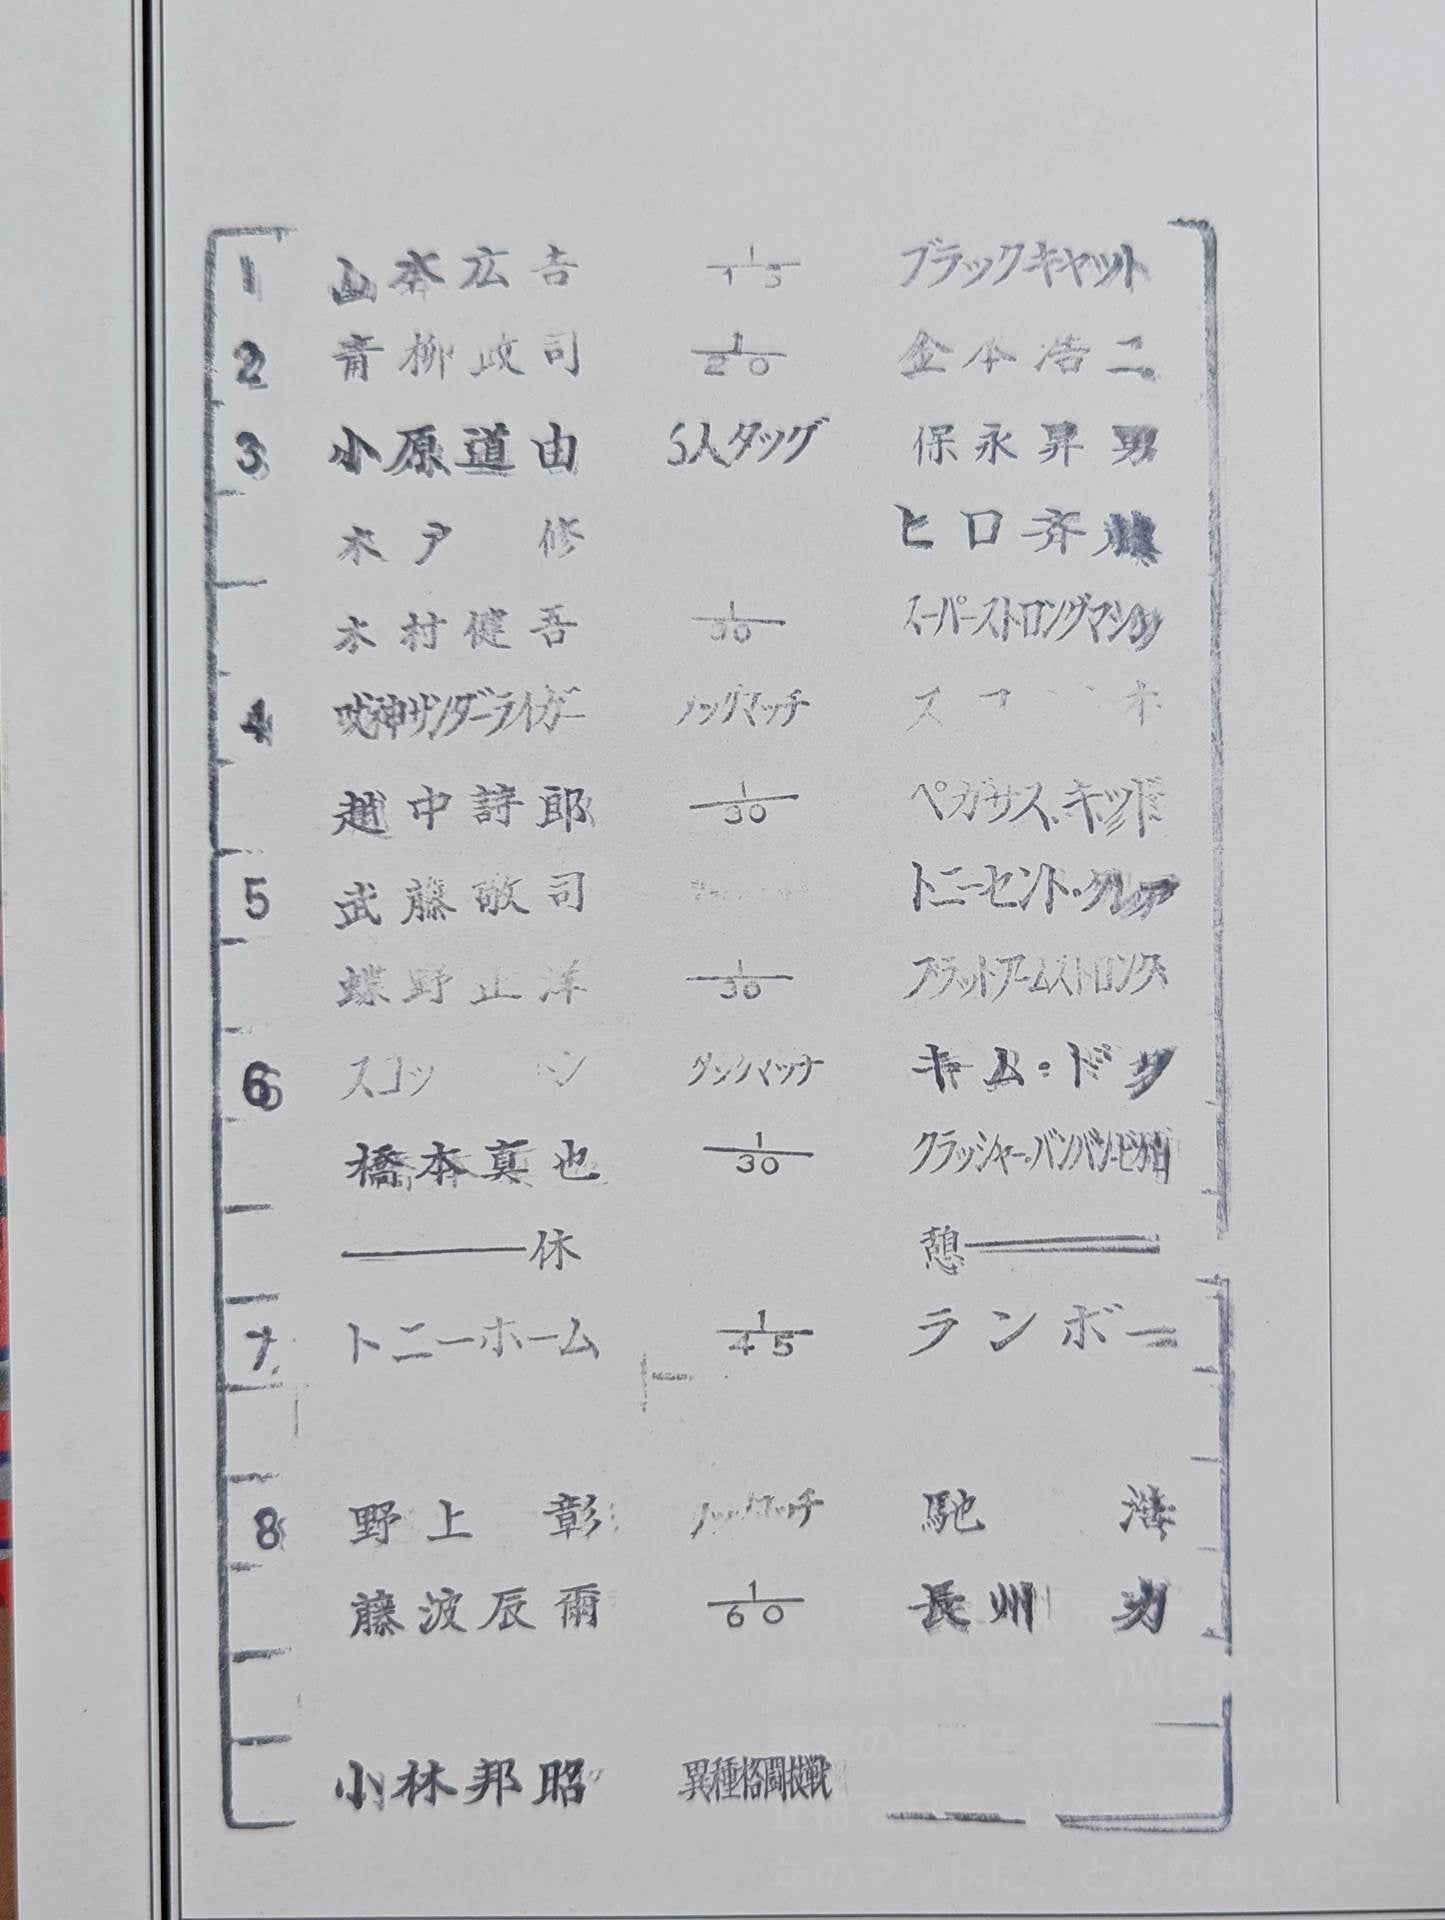 1 山本広吉 1/15 ブラックキャット
2 青柳政司 1/20 金本浩二
3 小原道由 6人タッグ 保永昇男
木戸修 ヒロ斉藤
木村健吾 1/30 スーパーストロングマシン
4 獣神サンダーライガー タッグマッチ
越中詩郎 1/30 ペガサス・キッド
5 武藤敬司 トニーセント・クレア
蝶野正洋 1/30 ブラットアームストロング
6 タッグマッチ キム・ドク
橋本真也 1/30 クラッシャー・バンバン・ビガロ
休 憩
7 トニーホーム 1/45 ランボー
8 野上彰 タッグマッチ 馳浩
藤波辰爾 1/60 長州力
小林邦昭 異種格闘技戦